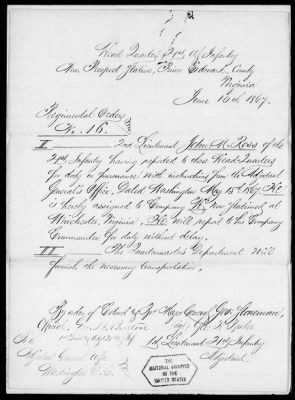 Head Quarters 21st US Infantry
Near Prospect Station, Prince Edward County
Virginia
June 10th 1867.
Regimental Orders
No. 16.
I 2nd Lieutenant John M. Ross of the
21st Infantry having reported to these Head Quarters
for duty in pursuance with instructions from the Adjutant
General's Office, Dated Washington May 15th 1867. He
is hereby assigned to Company "K" now stationed at
Winchester, Virginia. He will report to the Company
Commander for duty without delay.
II The Quartermasters Department will
furnish the necessary transportation.
By order of Colonel & Bvt Major General Geo. Stoneman,
Official,
1st Lieutenant 21st Infantry
Adjutant.
To
Adjutant General USA
Washington D.C.
THE
NATIONAL ARCHIVES
OF THE
UNITED STATES